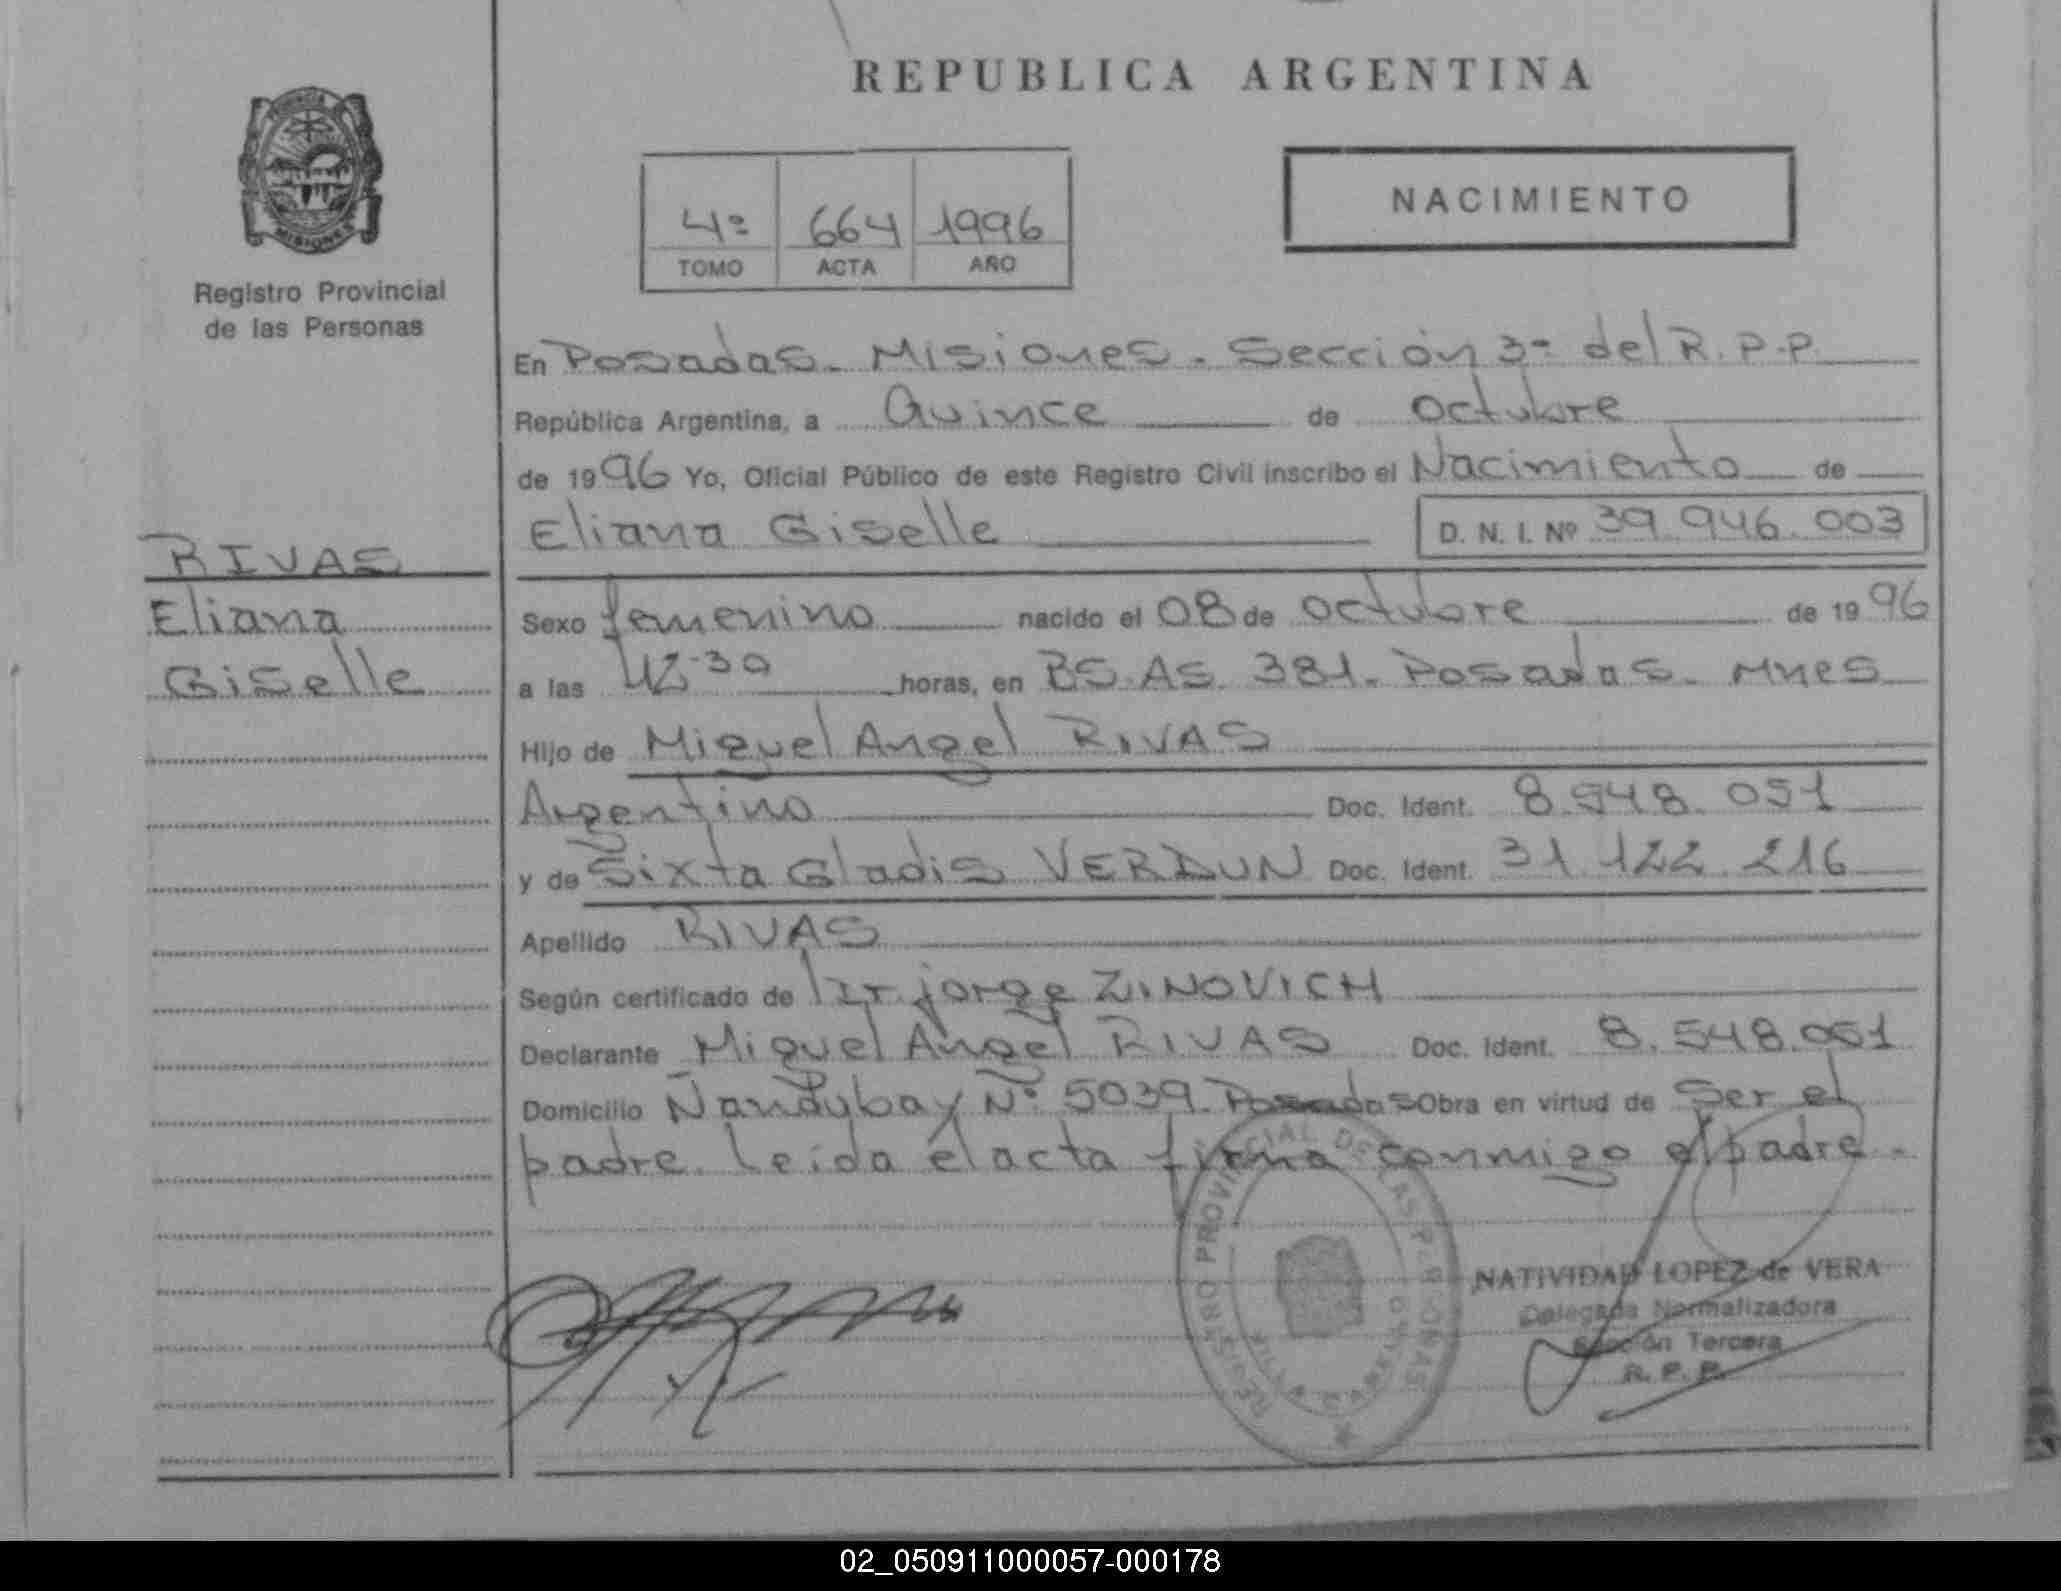 REPUBLICA ARGENTINA
PROVINCIA
MISIONES
Registro Provincial
de las Personas
4º 664 1996
TOMO ACTA AÑO
NACIMIENTO
En Posadas. Misiones. Sección 3º del R.P.P.
República Argentina, a Quince de octubre
de 1996 Yo, Oficial Público de este Registro Civil inscribo el Nacimiento de
Eliana Giselle D. N. I. Nº 39.946.003
RIVAS
Eliana
Giselle
Sexo femenino nacido el 08 de octubre de 1996
a las 12·30 horas, en BS.AS. 381. Posadas. Mnes
Hijo de Miguel Angel RIVAS
Argentino Doc. Ident. 8.548.051
y de Sixta Gladis VERDUN Doc. Ident. 31.122.216
Apellido RIVAS
Según certificado de jorge ZINOVICH
Declarante Miguel Angel RIVAS Doc. Ident. 8.548.051
Domicilio Ñandybay Nº 5039. Posadas Obra en virtud de Ser el
padre. Leida el acta firma conmigo el padre.
REGISTRO PROVINCIAL DE LAS PERSONAS
NATIVIDAD LOPEZ de VERA
Delegada Normalizadora
Sección Tercera
R. P. P.
02_050911000057-000178